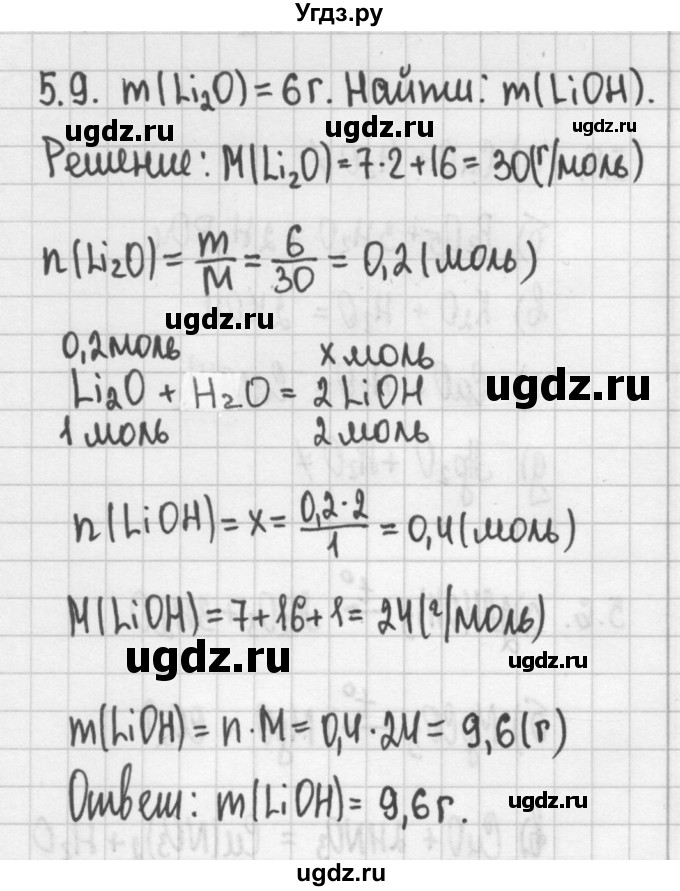 Угдз.ру
5.9. m(Li₂O) = 6г. Найти: m(LiOH).
ugdz.ru ugdz.ru
Решение: M(Li₂O) = 7·2+16 = 30(г/моль)
n(Li₂O) = m/M = 6/30 = 0,2 (моль)
ugdz.ru
0,2 моль x моль
Li₂O + H₂O = 2 LiOH ugdz.ru
1 моль 2 моль
n(LiOH) = x = 0,2·2/1 = 0,4 (моль)
M(LiOH) = 7+16+1 = 24(г/моль)
ugdz.ru
m(LiOH) = n·M = 0,4·24 = 9,6(г)
Ответ: m(LiOH) = 9,6г. ugdz.ru
ugdz.ru